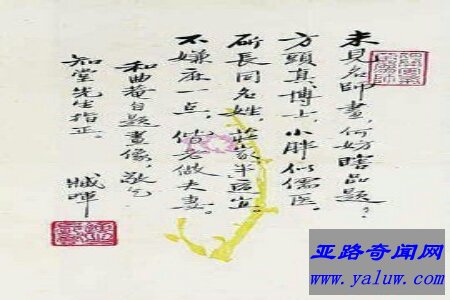 未見名師畫，何妨瞎品題？
方頭真博士，小胖似儒医。
所長同名姓，莊家半适宜。
不嫌麻一点，偕老做夫妻。
和曲菴自題畫像，敬乞
知堂先生指正。
臧暉
亚路奇闻网
www.yaluw.com